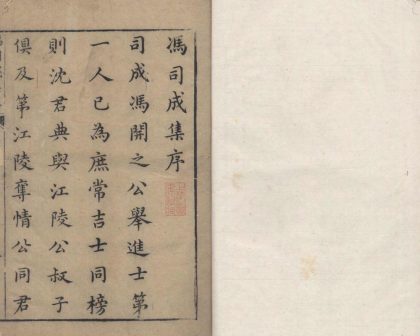 馮司成集序
司成馮開之公舉進士第
一人已為庶常吉士同榜
則沈君典與江陵公叔子
俱及第江陵奪情公同君